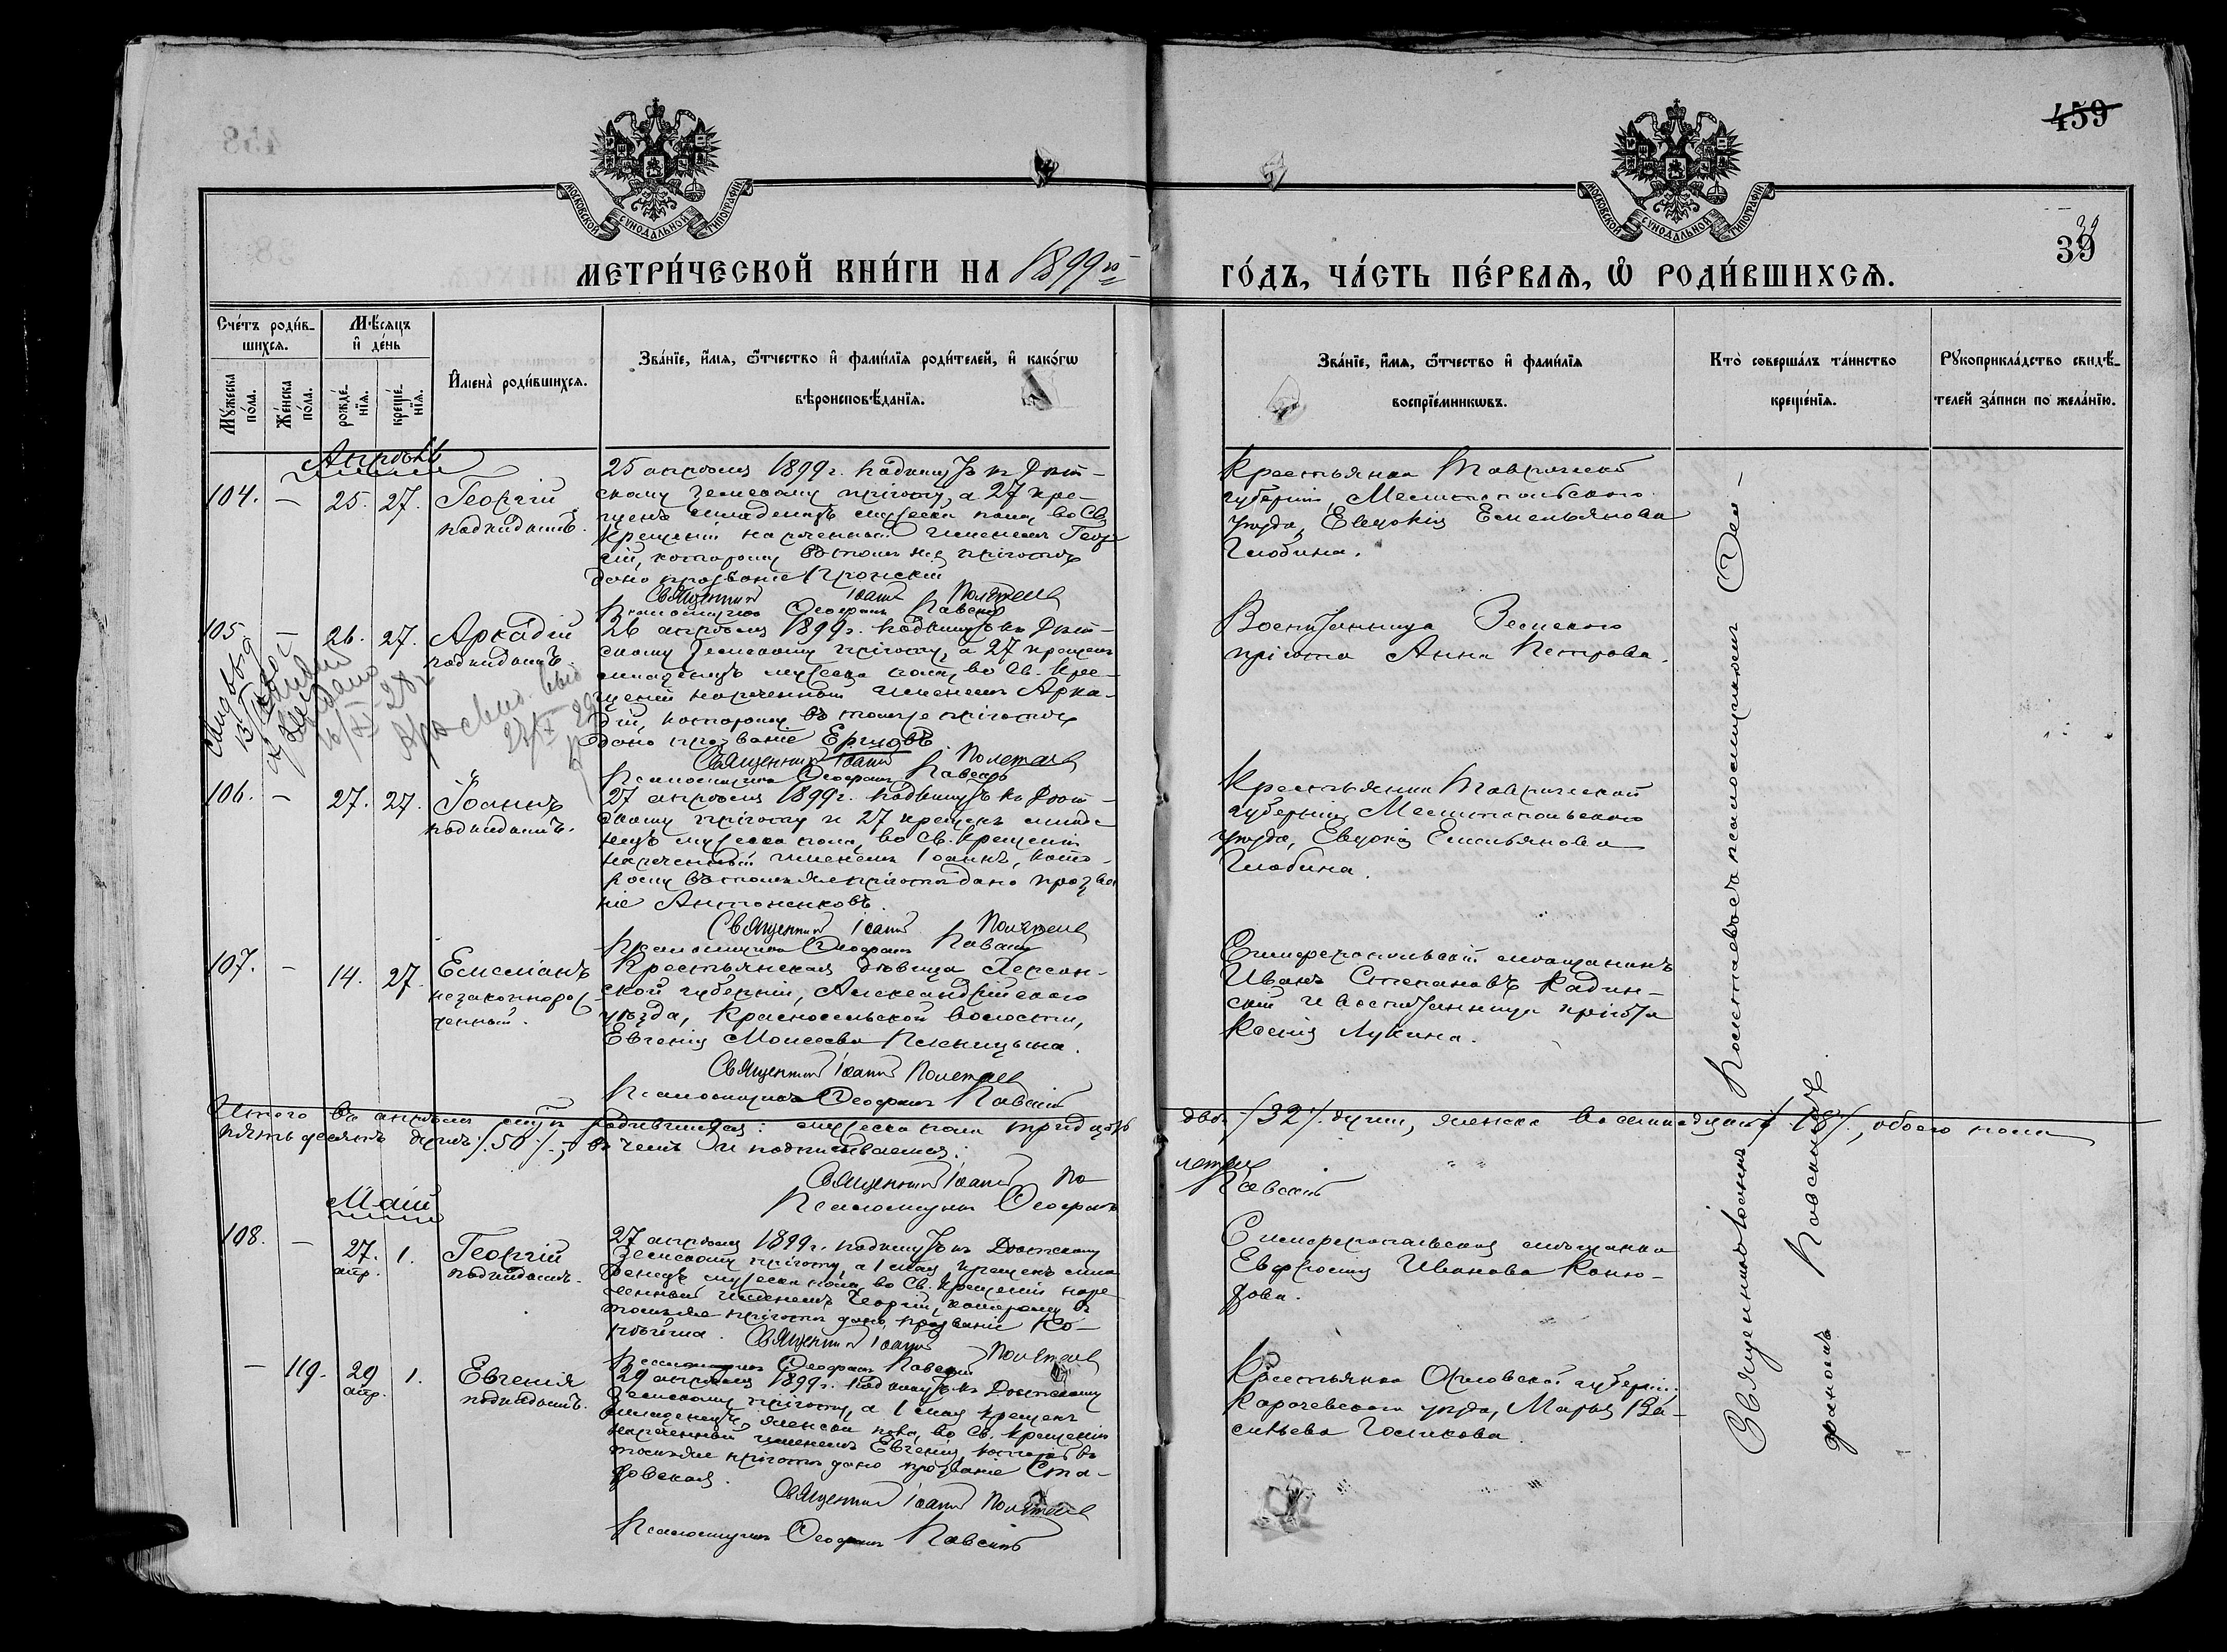 459
39
39
МОСКОВСКОЙ СѴНОДАЛЬНОЙ ТИПОГРАФІИ
МОСКОВСКОЙ СѴНОДАЛЬНОЙ ТИПОГРАФІИ
МЕТРИ́ЧЕСКОЙ КНИ́ГИ НА 1899 й
ГО́ДЪ, ЧА́СТЬ ПЕ́РВАѦ, Ѽ РОДИ́ВШИХСѦ.
Сче́тъ роди́в-
шихсѧ.
Мꙋ́жеска по́ла.
Же́нска по́ла.
Мѣ́сѧцъ и҆ де́нь
рожде́-нїѧ.
креще́-нїѧ.
И҆мена̀ роди́вшихсѧ.
Зва́нїе, и҆́мѧ, ѻ҆́тчество и҆ фами́лїѧ роди́телей, и҆ како́гѡ
вѣроисповѣ́данїѧ.
Зва́нїе, и҆́мѧ, ѻ҆́тчество и҆ фами́лїѧ
воспрїе́мникѡвъ.
Кто̀ соверша́лъ та́инство
креще́нїѧ.
Рꙋкоприкла́дство свидѣ́-
телей за́писи по жела́нїю.
Апрѣль
104. — 25. 27. Георгій
подкидышъ.
25 апрѣля 1899 г. подкинутъ къ Дѣт-
скому Земскому пріюту, а 27 кре-
щенъ младенецъ мужеска пола, во Св.
Крещеніи нареченный именемъ Геор
гій, которому въ томъ же пріютѣ
дано прозваніе
Священникъ Іоаннъ
Псаломщикъ Ѳеофанъ Павскій
Крестьянка Таврической
губерніи, Мелитопольского
уѣзда, Евдокія Емельянова
Глобина.
105. — 26. 27. Аркадій
подкидышъ.
26 апрѣля 1899 г. подкинутъ къ Дѣт-
скому Земскому пріюту, а 27 крещенъ
младенецъ мужеска пола, во Св. Кре-
щеніи нареченный именемъ Арка-
дій, которому въ томъ же пріютѣ
дано прозваніе
Священникъ Іоаннъ
Псаломщикъ Ѳеофанъ Павскій
Воспитанница Земского
пріюта Анна Петрова.
106. — 27. 27. Іоаннъ
подкидышъ.
27 апрѣля 1899 г. подкинутъ къ Дѣт-
скому пріюту и 27 крещенъ младе-
нецъ мужеска пола, во Св. Крещеніи
нареченный именемъ Іоаннъ, кото-
рому въ томъ же пріютѣ дано прозва
ніе Антоненковъ.
Священникъ Іоаннъ
Псаломщикъ Ѳеофанъ Павскій
Крестьянка Таврической
губерніи, Мелитопольского
уѣзда, Евдокія Емельянова
Глобина.
107. — 14. 27. Емеліанъ
незаконнорож-
денный.
Крестьянская дѣвица Херсон-
ской губерніи, Александрійского
уѣзда, Красносельской волости,
Евгенія Моисеева
Священникъ Іоаннъ
Псаломщикъ Ѳеофанъ Павскій
Симферопольскій мѣщанинъ
Иванъ Степановъ Кадин-
скій и воспитанница пріюта
Ксенія Лукина.
Итого въ апрѣлѣ родившихся: мужеска пола тридцать два /.32./. души, женска восемнадцать /.18./., обоего пола
пятьдесятъ душъ /.50./., въ чемъ и подписываемся:
Священникъ Іоаннъ
Псаломщикъ Ѳеофанъ Павскій
Май
108. — 27. апр. 1. Георгій
подкидышъ.
27 апрѣля 1899 г. подкинутъ къ Дѣтскому
Земскому пріюту, а 1 мая крещенъ мла
денецъ мужеска пола, во Св. Крещеніи наре-
ченный именемъ Георгій, которому въ
томъ же пріютѣ дано прозваніе
Священникъ Іоаннъ
Псаломщикъ Ѳеофанъ Павскій
Симферопольская мѣщанка
Евфросинія Иванова
— 119. 29 апр. 1. Евгенія
подкидышъ.
29 апрѣля 1899 г. подкинутъ къ Дѣтскому
Земскому пріюту, а 1 мая крещенъ
младенецъ женска пола, во Св. Крещеніи
нареченный именемъ Евгенія, которой въ
томъ же пріютѣ дано прозваніе
Священникъ Іоаннъ
Псаломщикъ Ѳеофанъ Павскій
Крестьянка Орловской губерніи
Карачевского уѣзда, Марья Ва-
сильева Голикова.
Священникъ Іоаннъ съ псаломщикомъ Ѳео-
фаномъ Павскимъ.